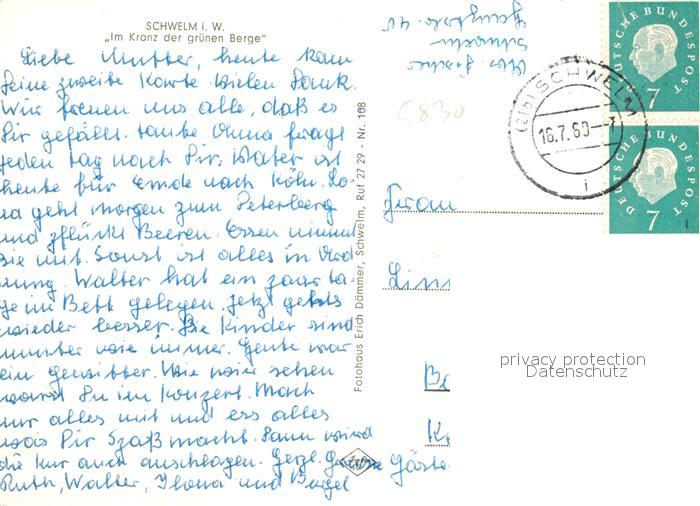 SCHWELM i. W.
„Im Kranz der grünen Berge"
Liebe Mutter, heute kam
Deine zweite Karte. Vielen Dank.
Wir freuen uns alle, daß es
Dir gefällt. Tante Anna fragt
jeden Tag nach Dir. Vater ist
heute für Ende nach Köln. Lo-
na geht morgen zum Peterberg
und pflückt Beeren. Essen nimmt
sie mit. Sonst ist alles in Ord
nung. Walter hat ein paar Ta-
ge im Bett gelegen. Jetzt gehts
wieder besser. Die Kinder sind
munter wie immer. Heute war
ein Gewitter. Wie wir sehen
warst Du im Konzert. Mach
nur alles mit und ess alles
was Dir Spaß macht. Dann wird
die Kur auch anschlagen. Herzl. Grüße
Ruth, Walter, Ilona und Bärbel
Fotohaus Erich Dämmer, Schwelm, Ruf 27 29 - Nr. 168
Schwelm
5830
(21b) SCHWELM
16.7.60--7
i
DEUTSCHE BUNDESPOST
7
DEUTSCHE BUNDESPOST
7
Frau
Lin
Be
K
Gäste
privacy protection
Datenschutz